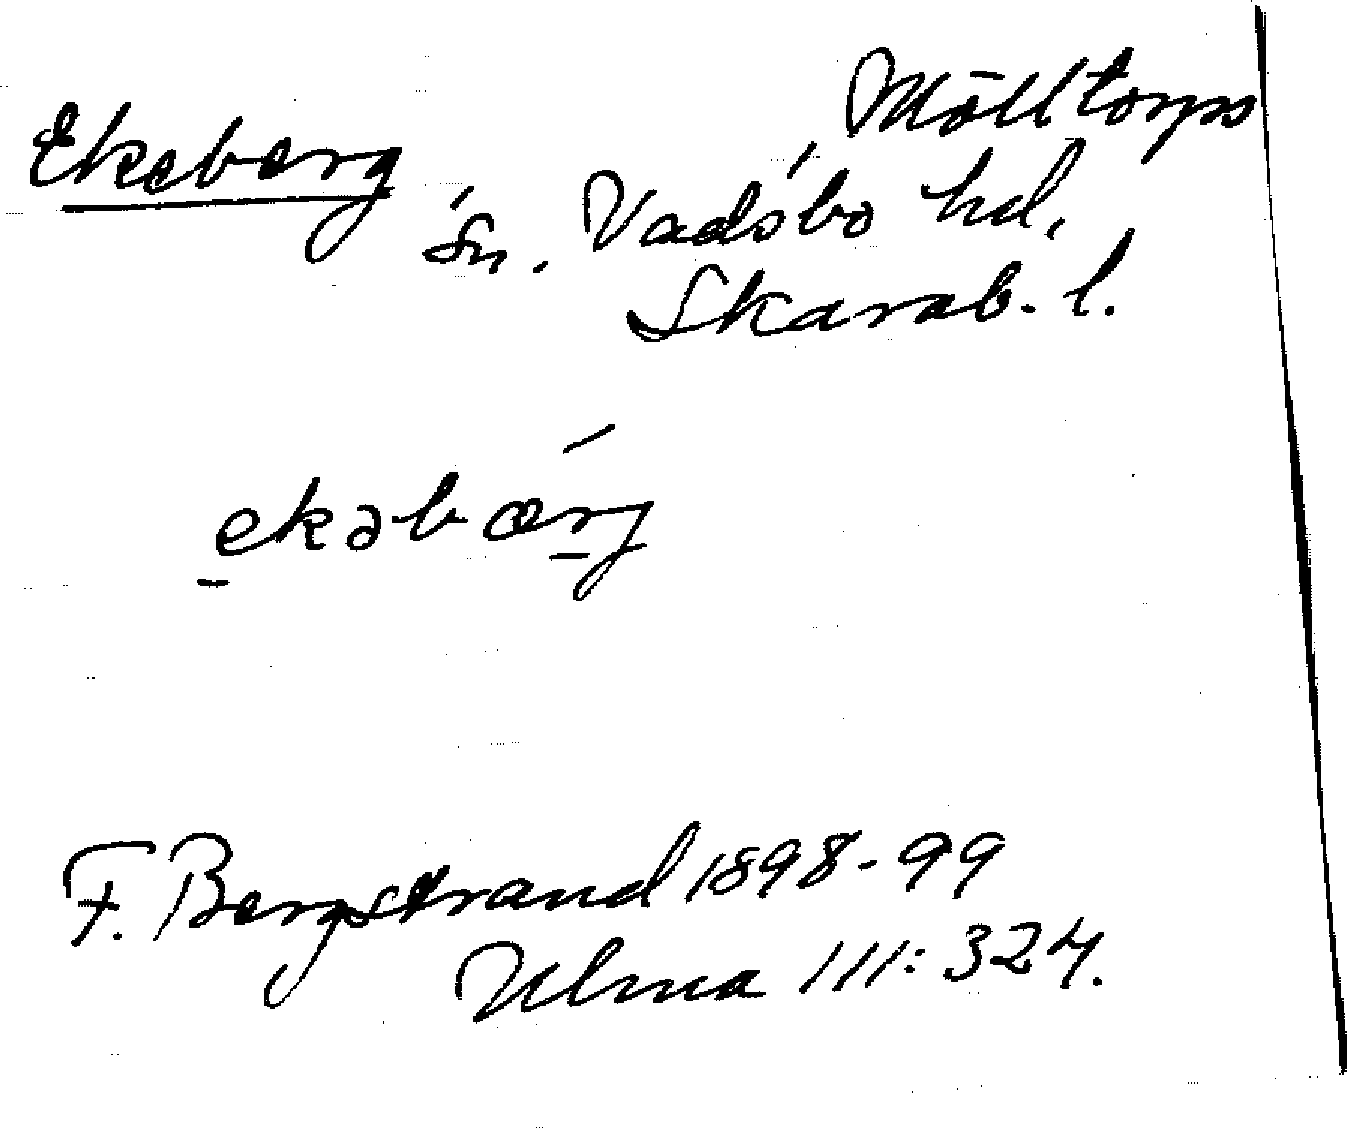 Ekeberg Mölltorps
sn. Vadsbo hd.
Skarab. l.
ekəbærj
F. Bergstrand 1898-99
Ulma 111:324.